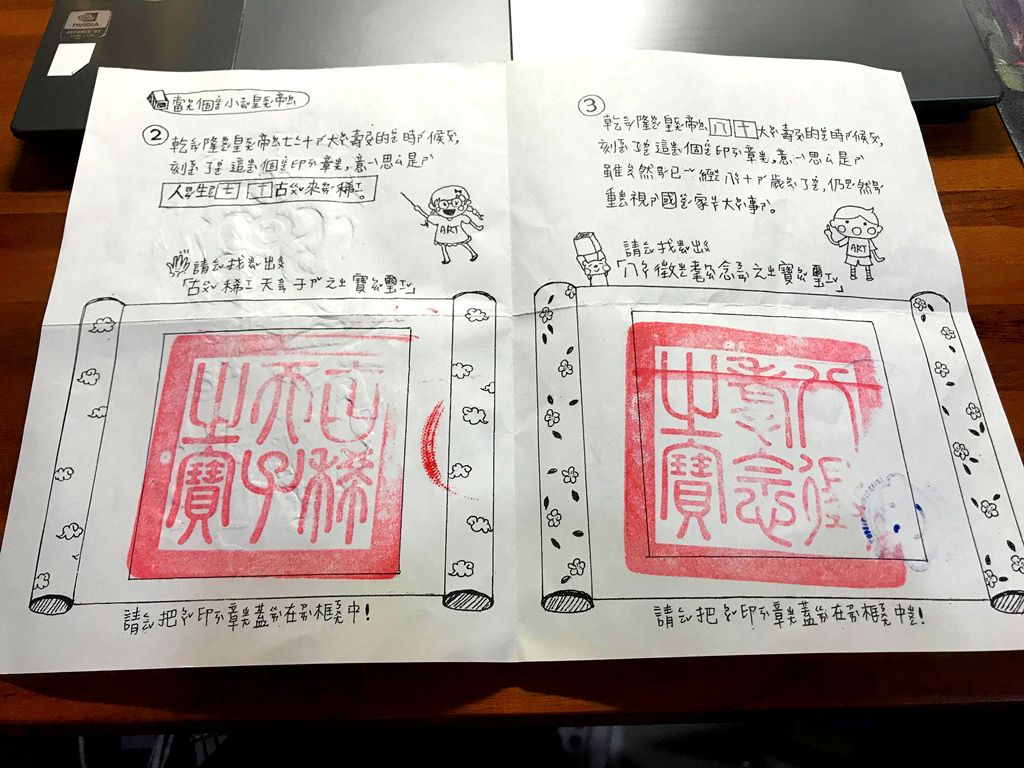 NVIDIA
GEFORCE GT
當個小皇帝
②
乾隆皇帝七十大壽的時候,
刻了這個印章,意思是
人生七十古來稀。
ART
請找出
「古稀天子之寶璽」
古稀
天子
之寶
請把印章蓋在框中!
③
乾隆皇帝八十大壽的時候,
刻了這個印章,意思是
雖然已經八十歲了,仍然
重視國家大事。
ART
請找出
「八徵耄念之寶璽」
八徵
耄念
之寶
請把印章蓋在框中!